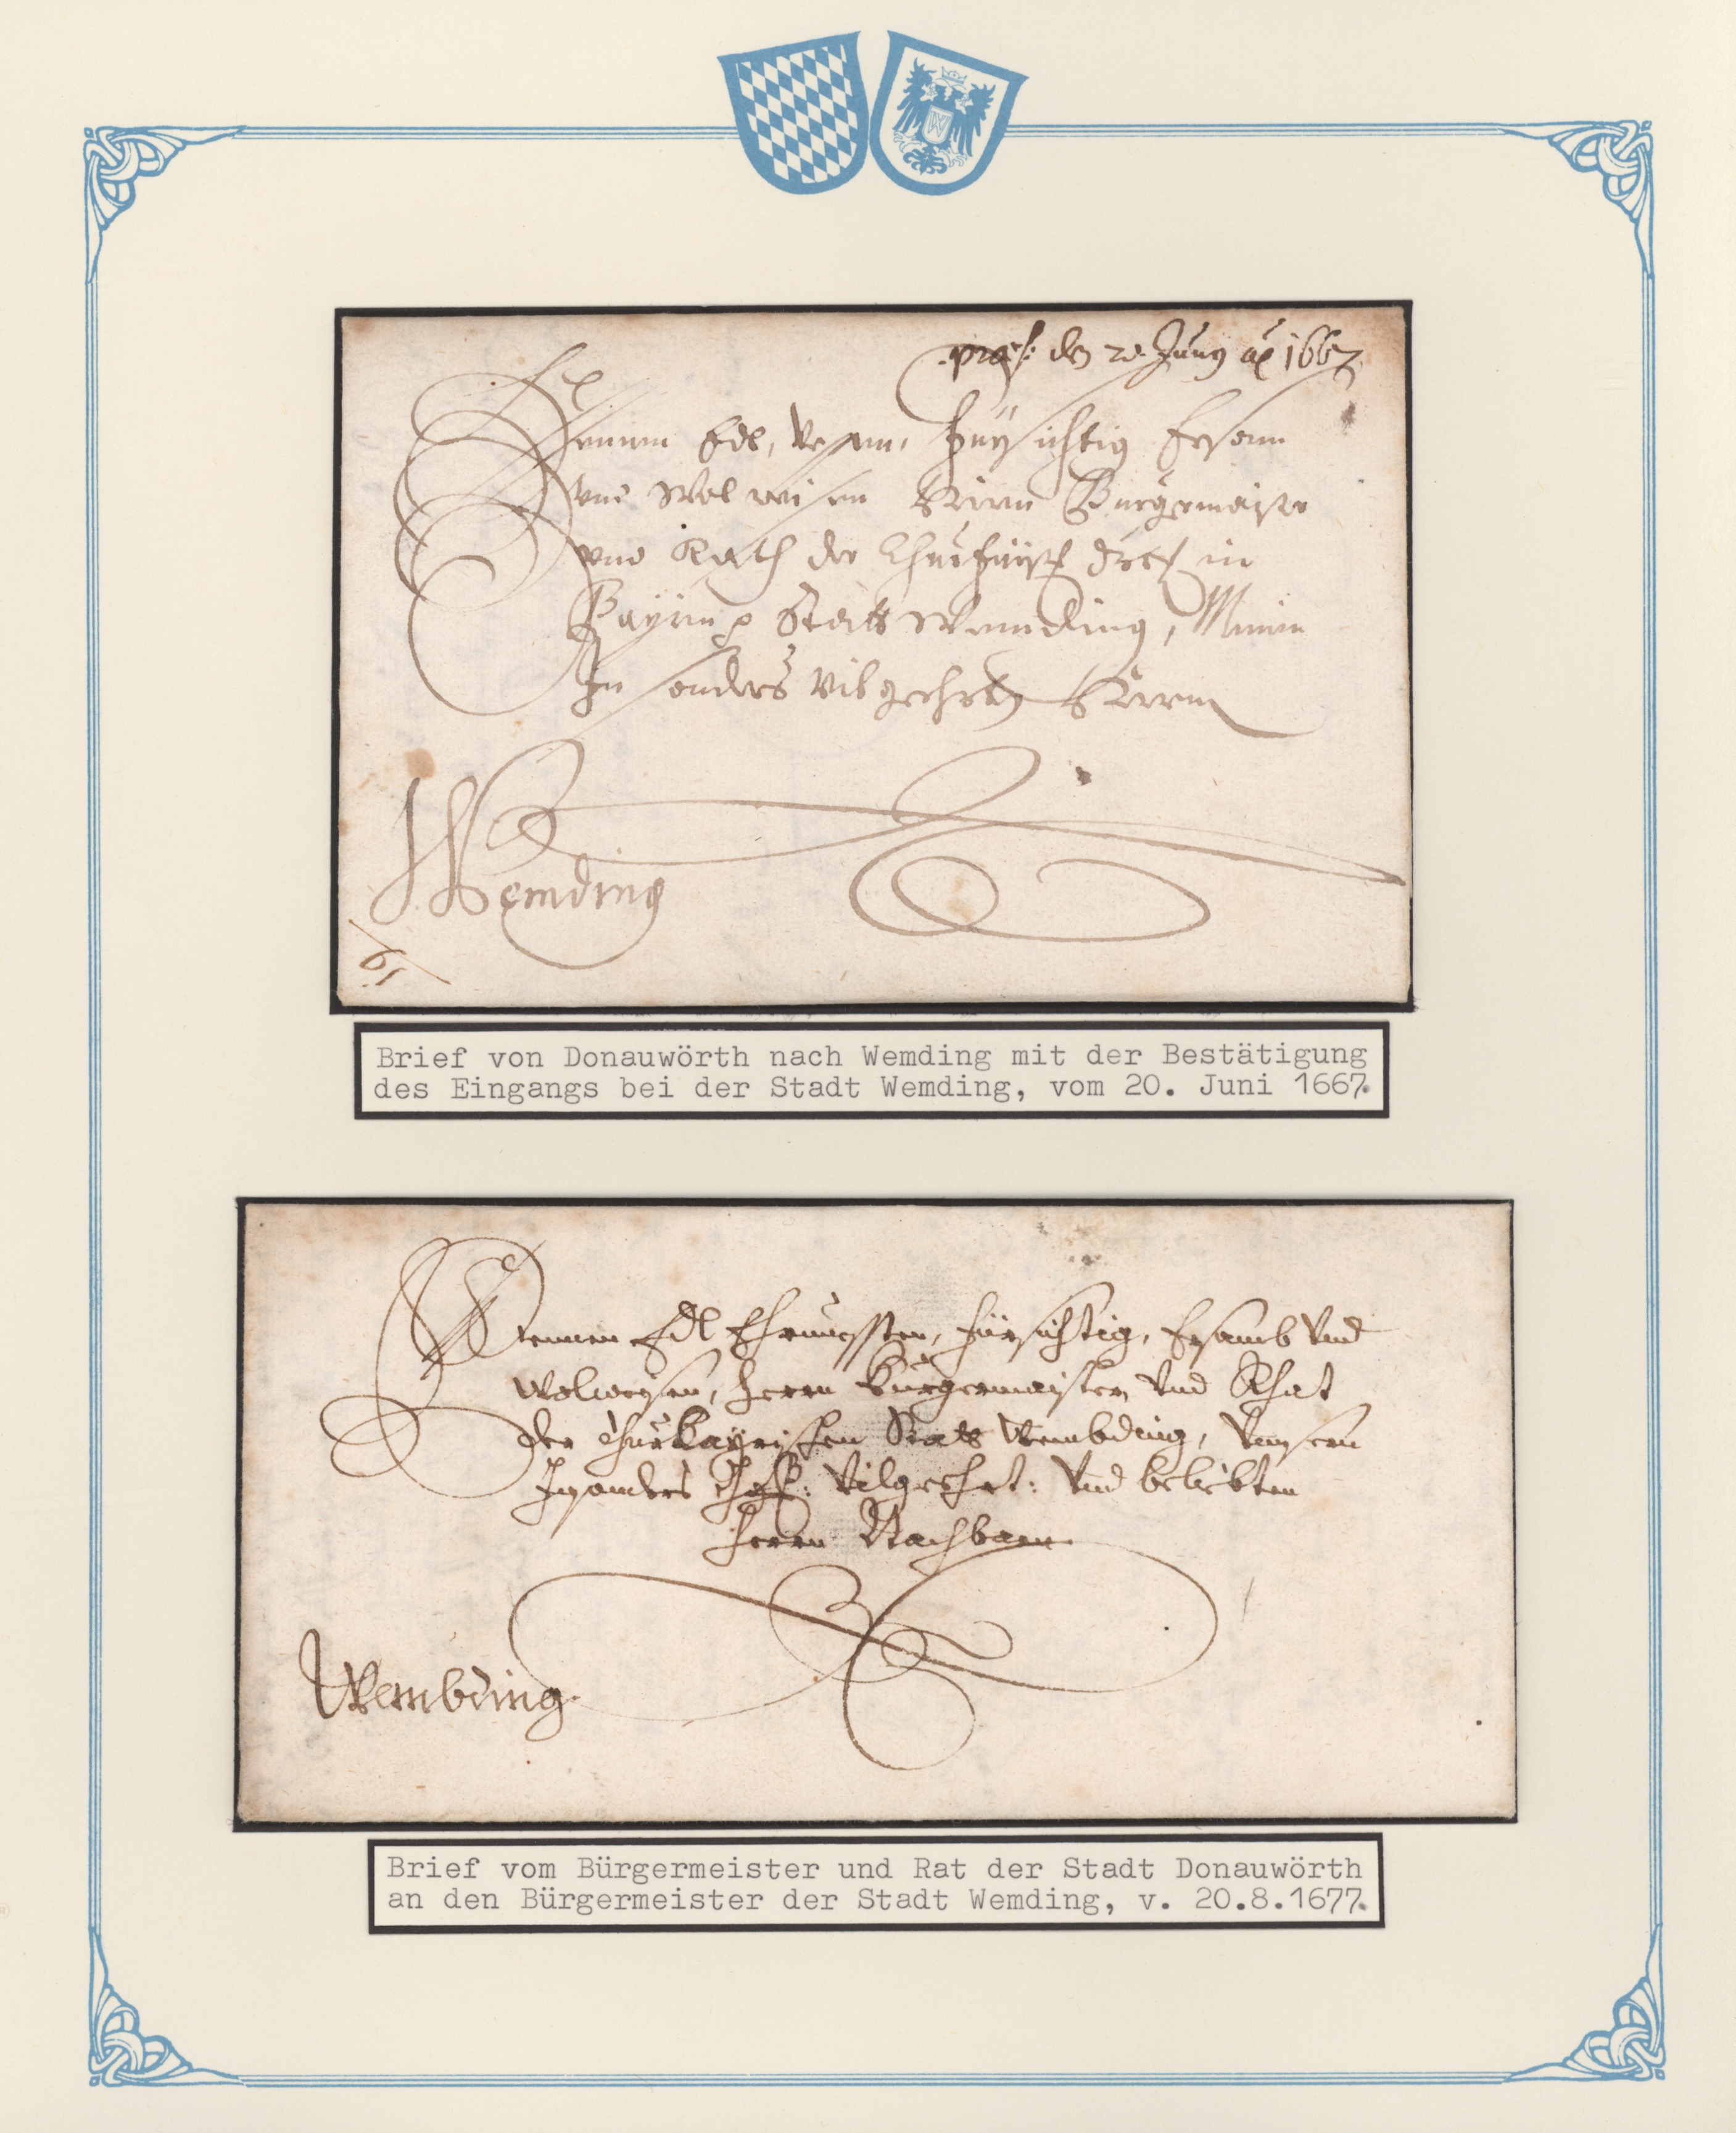 W
præs: den 20. Juny ao 1667
Denen Edl, Vesten, Fürsichtig Ersam
vnd Wolweisen Herrn Burgermaister
vnd Rath der Churfürstl: in
Bayrn Statt Wembding, Meinen
Insonders Vilgeehrten Herrn
Wemding
Brief von Donauwörth nach Wemding mit der Bestätigung
des Eingangs bei der Stadt Wemding, vom 20. Juni 1667.
Denen Edl Ehrnuessten, Fürsichtig, Ersamb Vnd
Wolweysen, Herrn Burgermaister Vnd Rhat
der ChurBayrischen Statt Wembding, Vnsern
Insonders Vilgeehrt: Vnd beliebten
Herrn Nachbarn
Wembding.
Brief vom Bürgermeister und Rat der Stadt Donauwörth
an den Bürgermeister der Stadt Wemding, v. 20.8.1677.